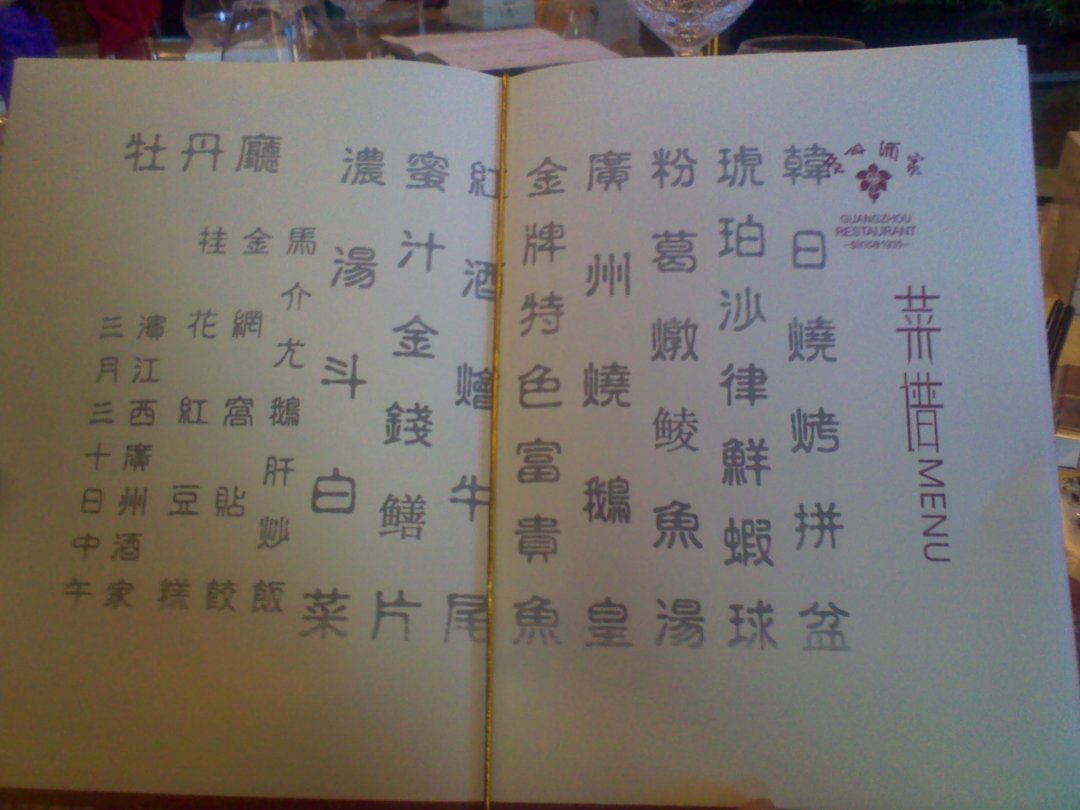 廣州酒家
GUANGZHOU
RESTAURANT
—since1935—
菜谱 MENU
韓日燒烤拼盆
琥珀沙律鮮蝦球
粉葛燉鲮魚湯
廣州燒鵝皇
金牌特色富貴魚
紅酒燴牛尾
蜜汁金錢鳝片
濃湯斗白菜
馬介尤鵝肝炒飯
金網窩貼餃
桂花紅豆糕
牡丹廳
濱江西廣州酒家
三月三十日中午